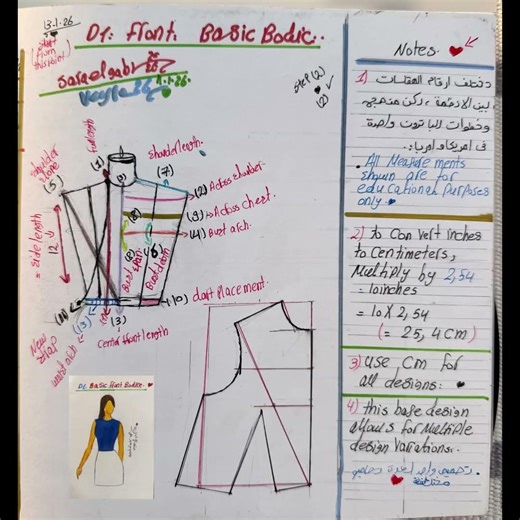 13.1.26
D1: Front Basic Bodic.
start
from
this point
Step (2)
(2) ✓
full length
Shoulder length
shoulder slope
(5)
(1)
(3)
(7)
(2) Across shoulder
(3) Across chest
(4) Bust arch
(8)
Bust span
Bust depth
= side length
12
(10) dart placement
(11)
(13)
(3)
center front length
New strap
waist arch
D1: Basic Front Bodice.
Notes
1) تختلف أرقام المقاسات
بين الأنظمة، لكن منهجية
وخطوات الباترون واحدة
في أمريكا وأوربا.
All Measurements
shown are for
educational purposes
only.
2) to Convert inches
to centimeters,
Multiply by 2,54
= 10 inches
= 10 x 2,54
(= 25,4 cm)
3) use Cm for
all designs.
4) this base design
allows for Multiple
design variations.